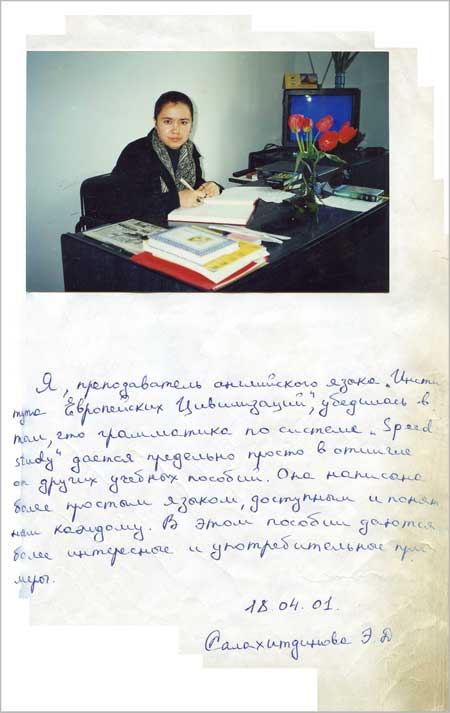 Я, преподаватель английского языка „Инсти
тута Европейских Цивилизаций", убедилась в
том, что грамматика по системе „Speed
study" дается предельно просто в отличие
от других учебных пособий. Она написана
более простым языком, доступным и понят
ным каждому. В этом пособии даются
более интересные и употребительные при-
меры.
18.04.01.
Салахитдинова Э.Д